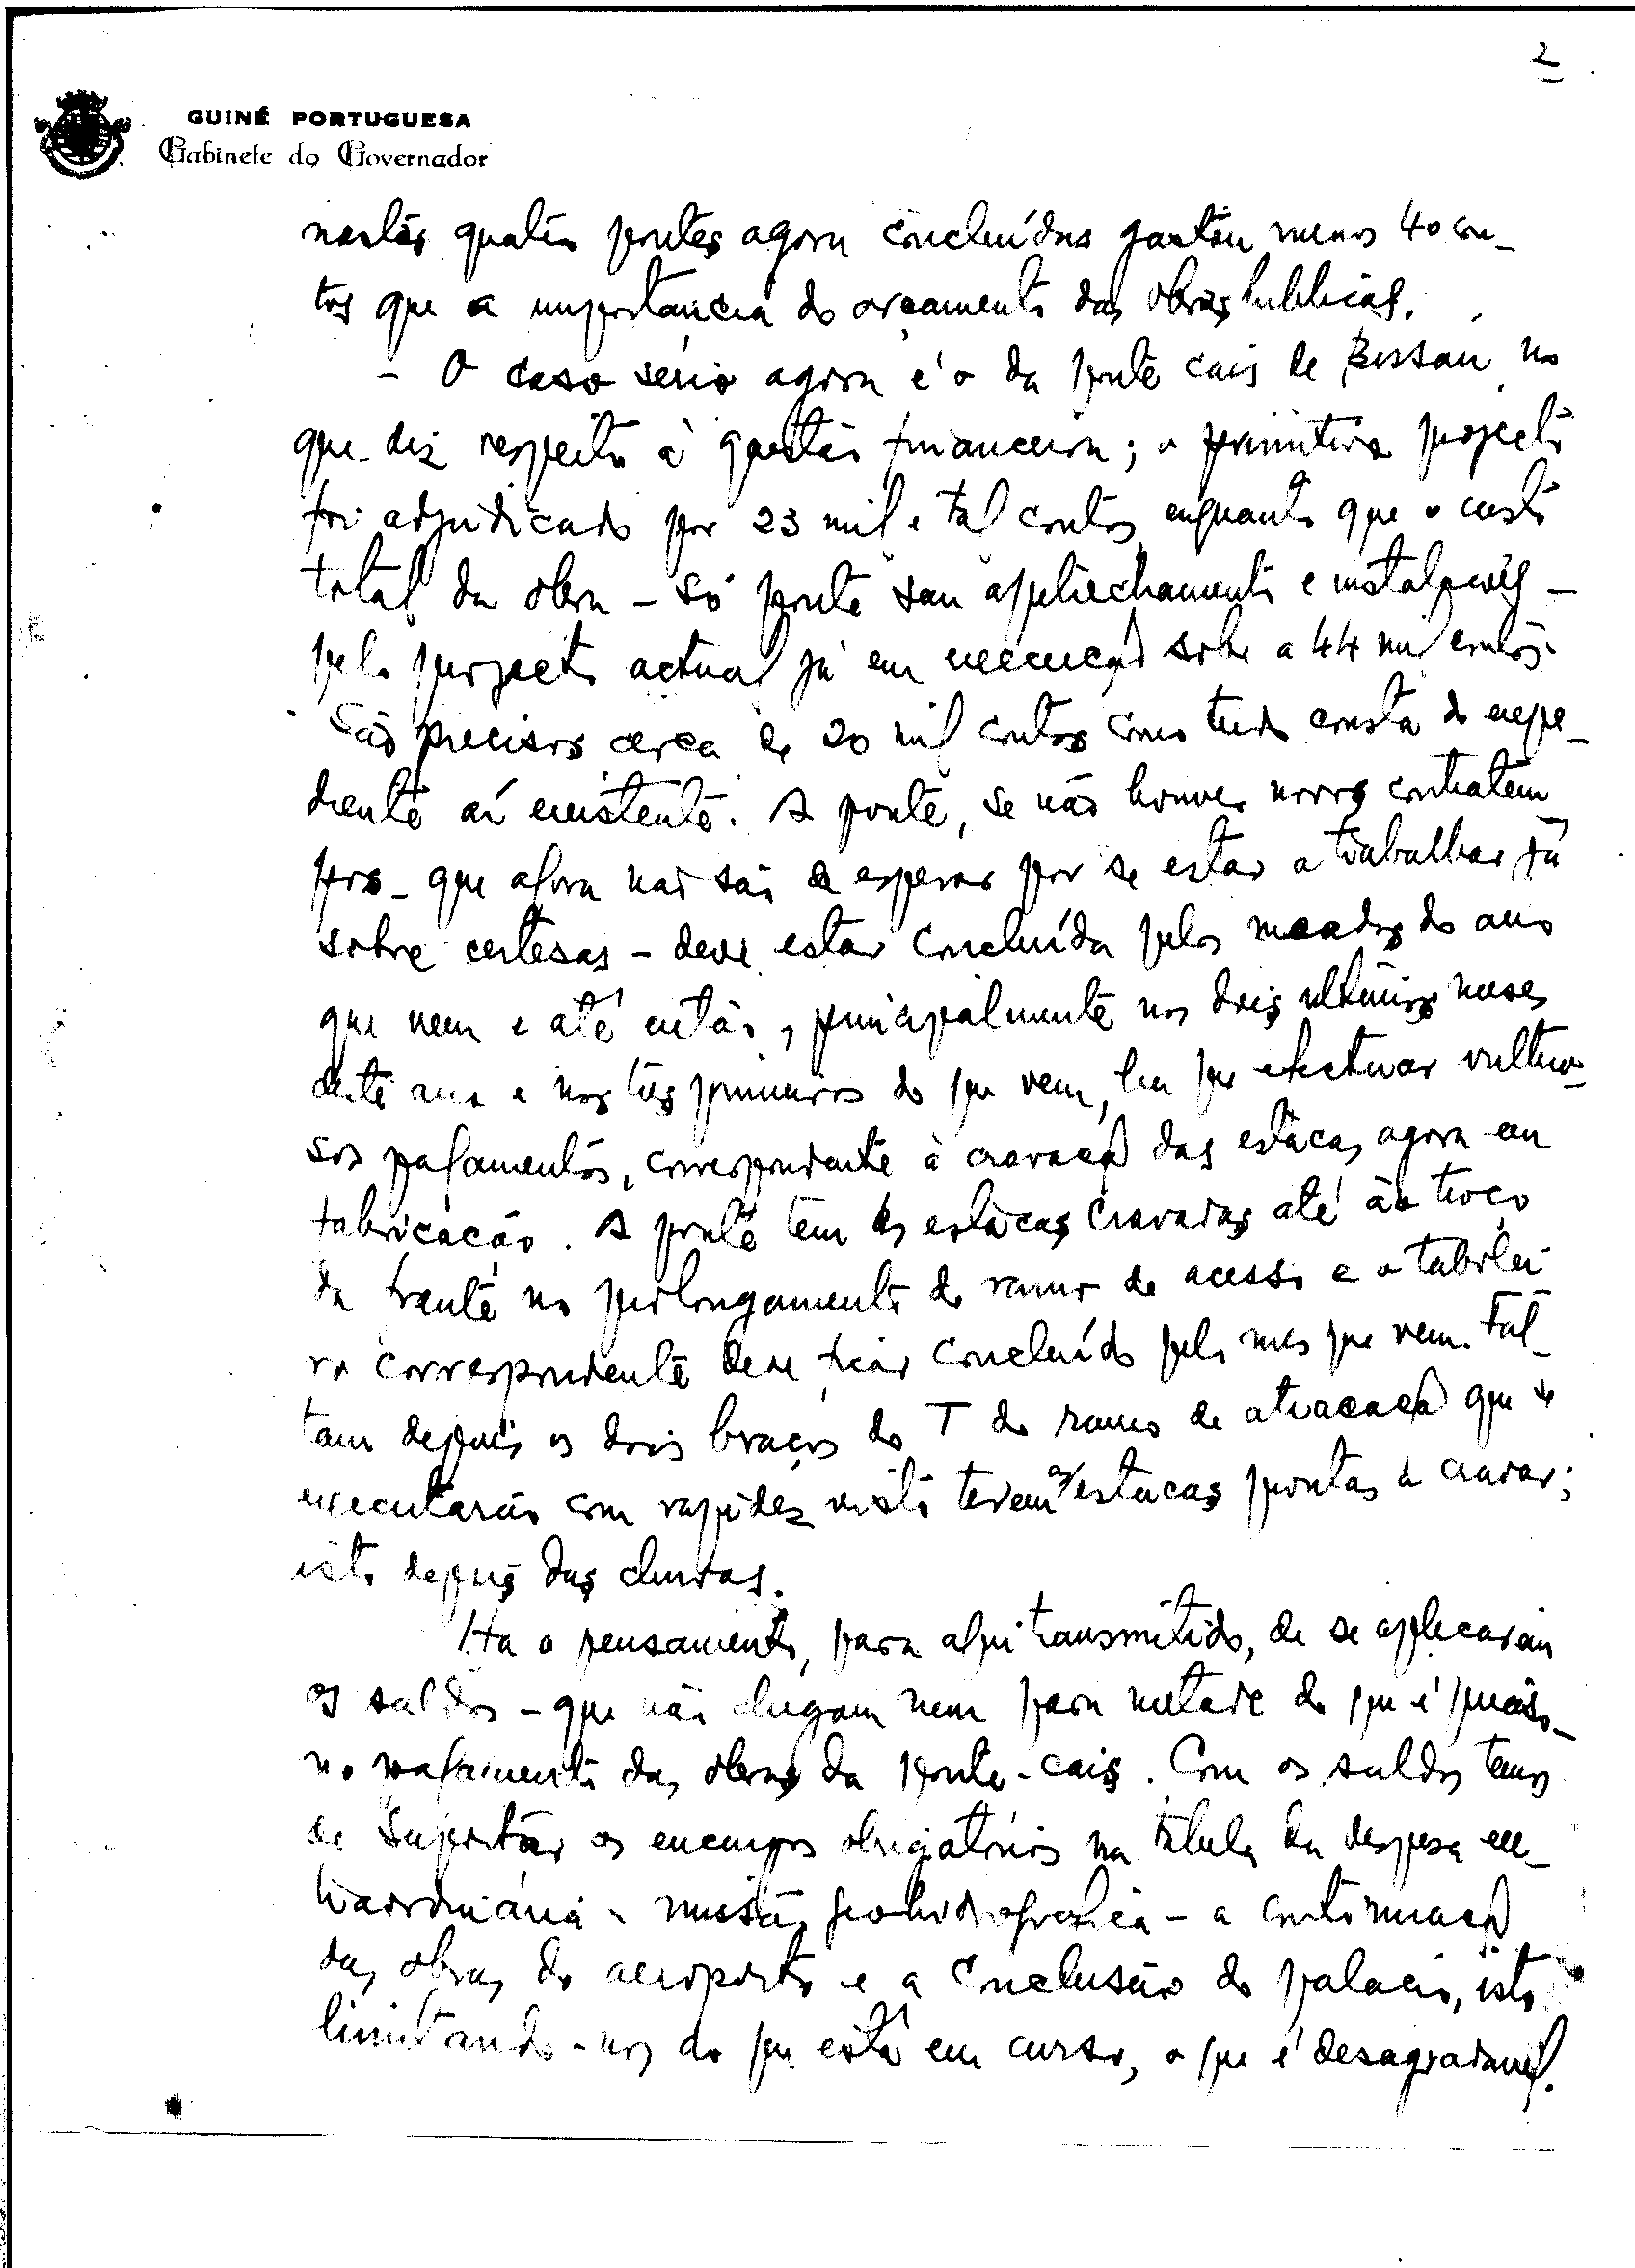 2
GUINÉ PORTUGUESA
Gabinete do Governador
nestas quatro pontes agora concluídas gastou menos 40 con-
tos que a importancia do orçamento das obras publicas.
- O caso serio agora é o da ponte cais de Bissau no
que diz respeito á questão financeira; o primitivo projecto
foi adjudicado por 23 mil e tal contos enquanto que o custo
total da obra - só ponte sem apetrechamento e instalações -
pelo projecto actual já em execução sobe a 44 mil contos.
São precisos cerca de 20 mil contos como tudo consta do expe-
diente aí existente. A ponte, se não houver novos contratem-
pos - que agora não são de esperar por se estar a trabalhar já
sobre certesas - deve estar concluída pelos meados do ano
que vem e até então, principalmente nos dois ultimos meses
deste ano e nos tres primeiros do que vem, ha que efectuar vultuo-
sos pagamentos, correspondente à cravação das estacas agora em
fabricação. A ponte tem as estacas cravadas até ao troço
da frente no prolongamento do ramo de acesso e o tabolei-
ro correspondente deve ficar concluído pelo mes que vem. Fal-
tam depois os dois braços do T do ramo de atracação que se
executarão com rapidez visto terem as estacas prontas a cravar;
isto depois das chuvas.
Ha o pensamento, para aqui transmitido, de se aplicarem
os saldos - que não chegam nem para metade do que é preciso -
no pagamento das obras da ponte-cais. Com os saldos temos
de suportar os encargos obrigatórios na tabela da despesa ex-
traordinária - missão geohidrografica - a continuação
das obras do aeroporto e a conclusão do palacio, isto
limitando-nos ao que está em curso, o que é desagradavel.